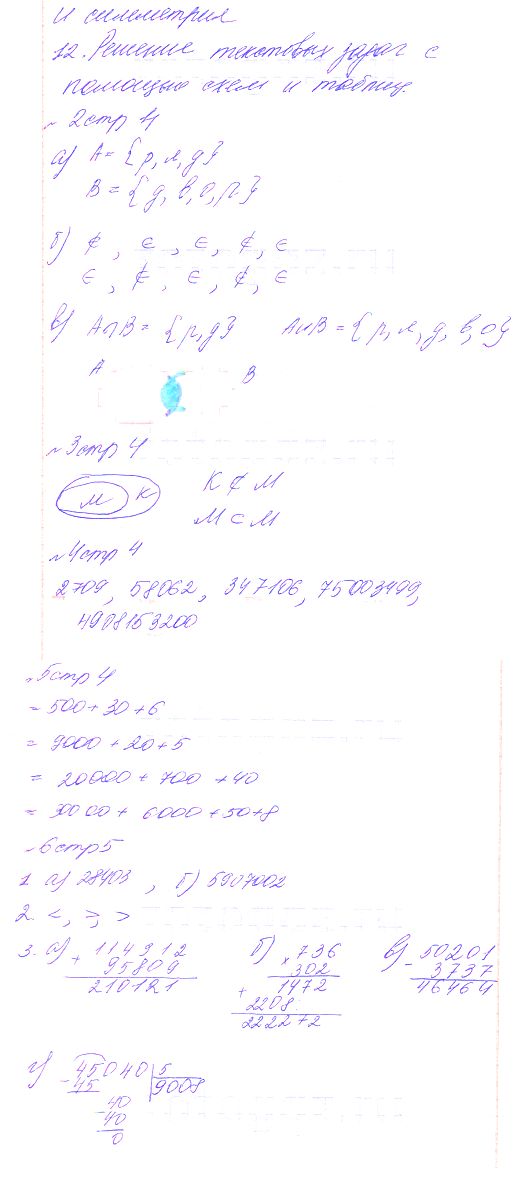 и симметрия
12. Решение текстовых задач с
помощью схем и таблиц.
~ 2 стр 4
а) A = {р, л, д}
B = {д, в, о, р}
б) ∉, ∈, ∈, ∉, ∈
∈, ∉, ∈, ∉, ∈
в) A∩B = {р, д} A∪B = {р, л, д, в, о}
A B
~ 3 стр 4
М К К ⊄ М
М ⊂ М
~ 4 стр 4
2709, 58062, 347106, 75003499,
4908153200
~ 5 стр 4
= 500 + 30 + 6
= 9000 + 20 + 5
= 20000 + 700 + 40
= 30000 + 6000 + 50 + 8
~ 6 стр 5
1. а) 28403, б) 5907002
2. <, >, >
3. а) + 114312
95809
210121
б) × 736
302
+ 1472
2208
222272
в) - 50201
3737
46464
г) - 45040 5
45 9008
- 40
40
0